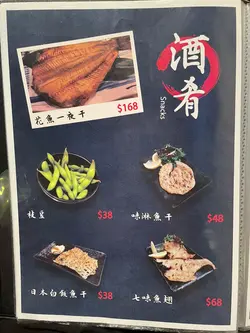 酒肴
Snacks
$168
花魚一夜干
枝豆 $38
味淋魚干 $48
日本白飯魚干 $38
七味魚翅 $68